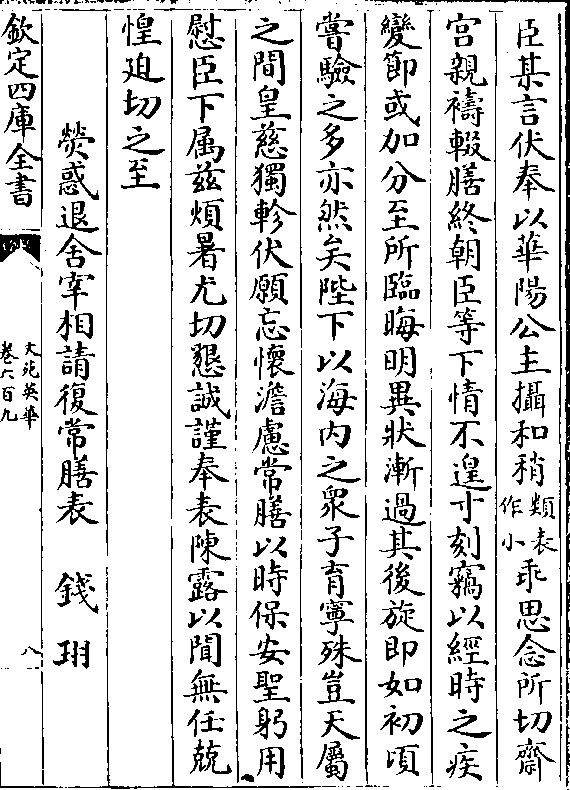 臣某言伏奉以華陽公主攝和稍類表作小乖思念所切齋
宮親禱輟膳終朝臣等下情不遑寸刻竊以經時之疾
變節或加分至所臨晦明異狀漸過其後旋即如初頃
嘗驗之多亦然矣陛下以海内之衆子育寧殊豈天屬
之間皇慈獨軫伏願忘懷澹慮常膳以時保安聖躬用
慰臣下属兹煩暑尤切懇誠謹奉表陳露以聞無任兢
惶廹切之至
熒惑退舍宰相請復常膳表 錢珝
欽定四庫全書
文苑英華
卷六百九
八